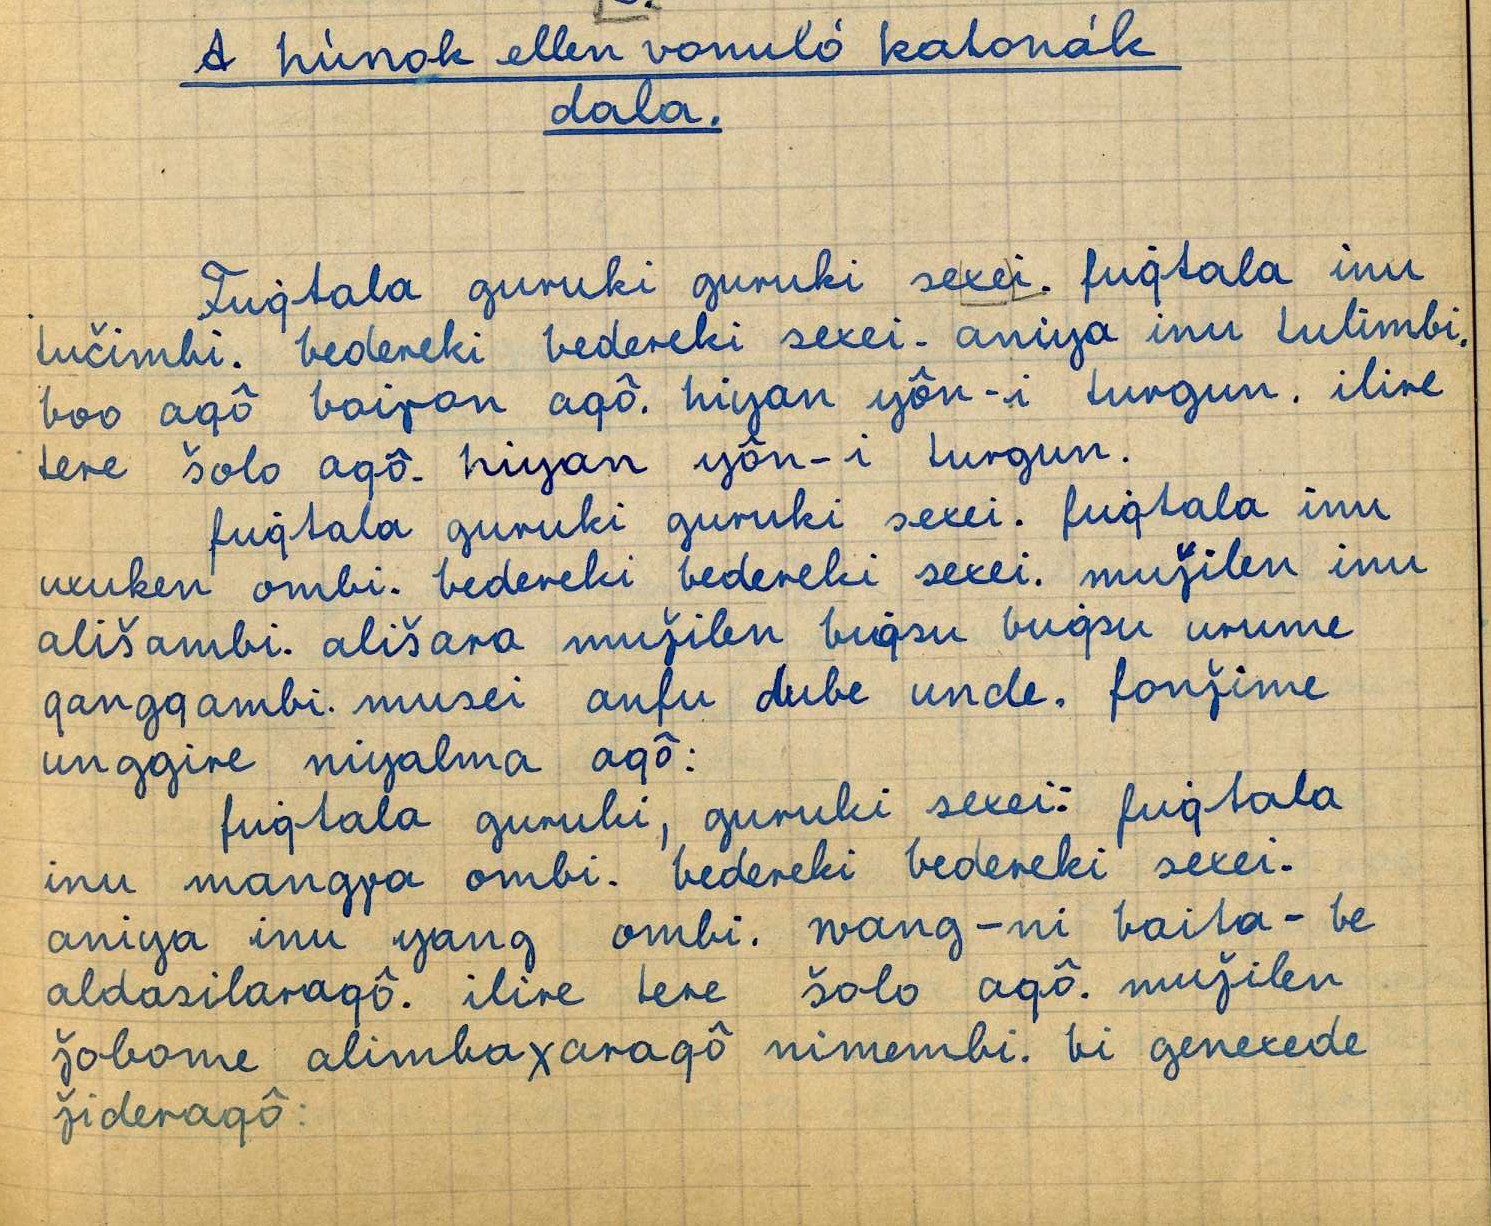 A húnok ellen vonuló katonák
dala.
Fuq̇tala guruki guruki sexei. fuq̇tala inu
tučimbi. bedereki bedereki sexei. aniya inu tulimbi.
boo aqô boiɣon aqô. hiyan yôn-i turgun. ilire
tere šolo aqô. hiyan yôn-i turgun.
fuq̇tala guruki guruki sexei. fuq̇tala inu
uxuken ombi. bedereki bedereki sexei. muǯilen inu
ališambi. ališara muǯilen buq̇su buq̇su urume
qangqambi. musei anfu dube unde. fonǯime
unggire niyalma aqô:
fuq̇tala guruki, guruki sexei: fuq̇tala
inu mangɣa ombi. bedereki bedereki sexei.
aniya inu yang ombi. wang-ni baita-be
aldasilaraqô. ilire tere šolo aqô. muǯilen
ǯobome alimbaχaraqô nimembi. bi genexede
ǯideraqô: